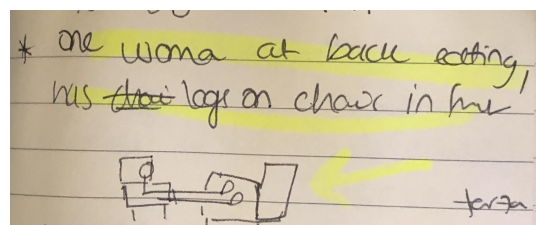 * one woma at back eating,
has legs on chair in fr